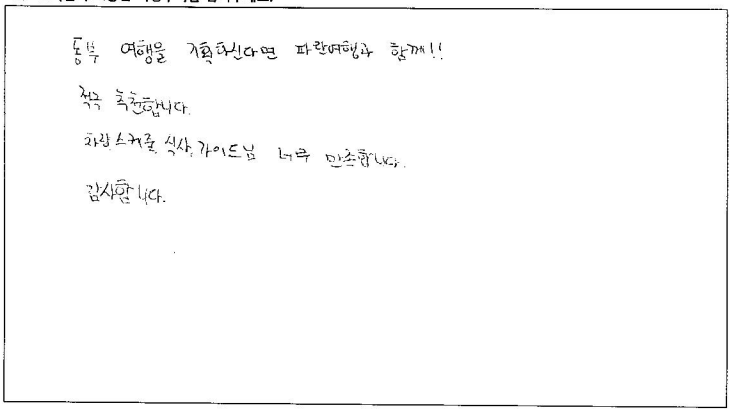 동부 여행을 기획하신다면 파란여행과 함께!!
적극 추천합니다.
차량, 스케줄, 식사, 가이드님 너무 만족합니다.
감사합니다.